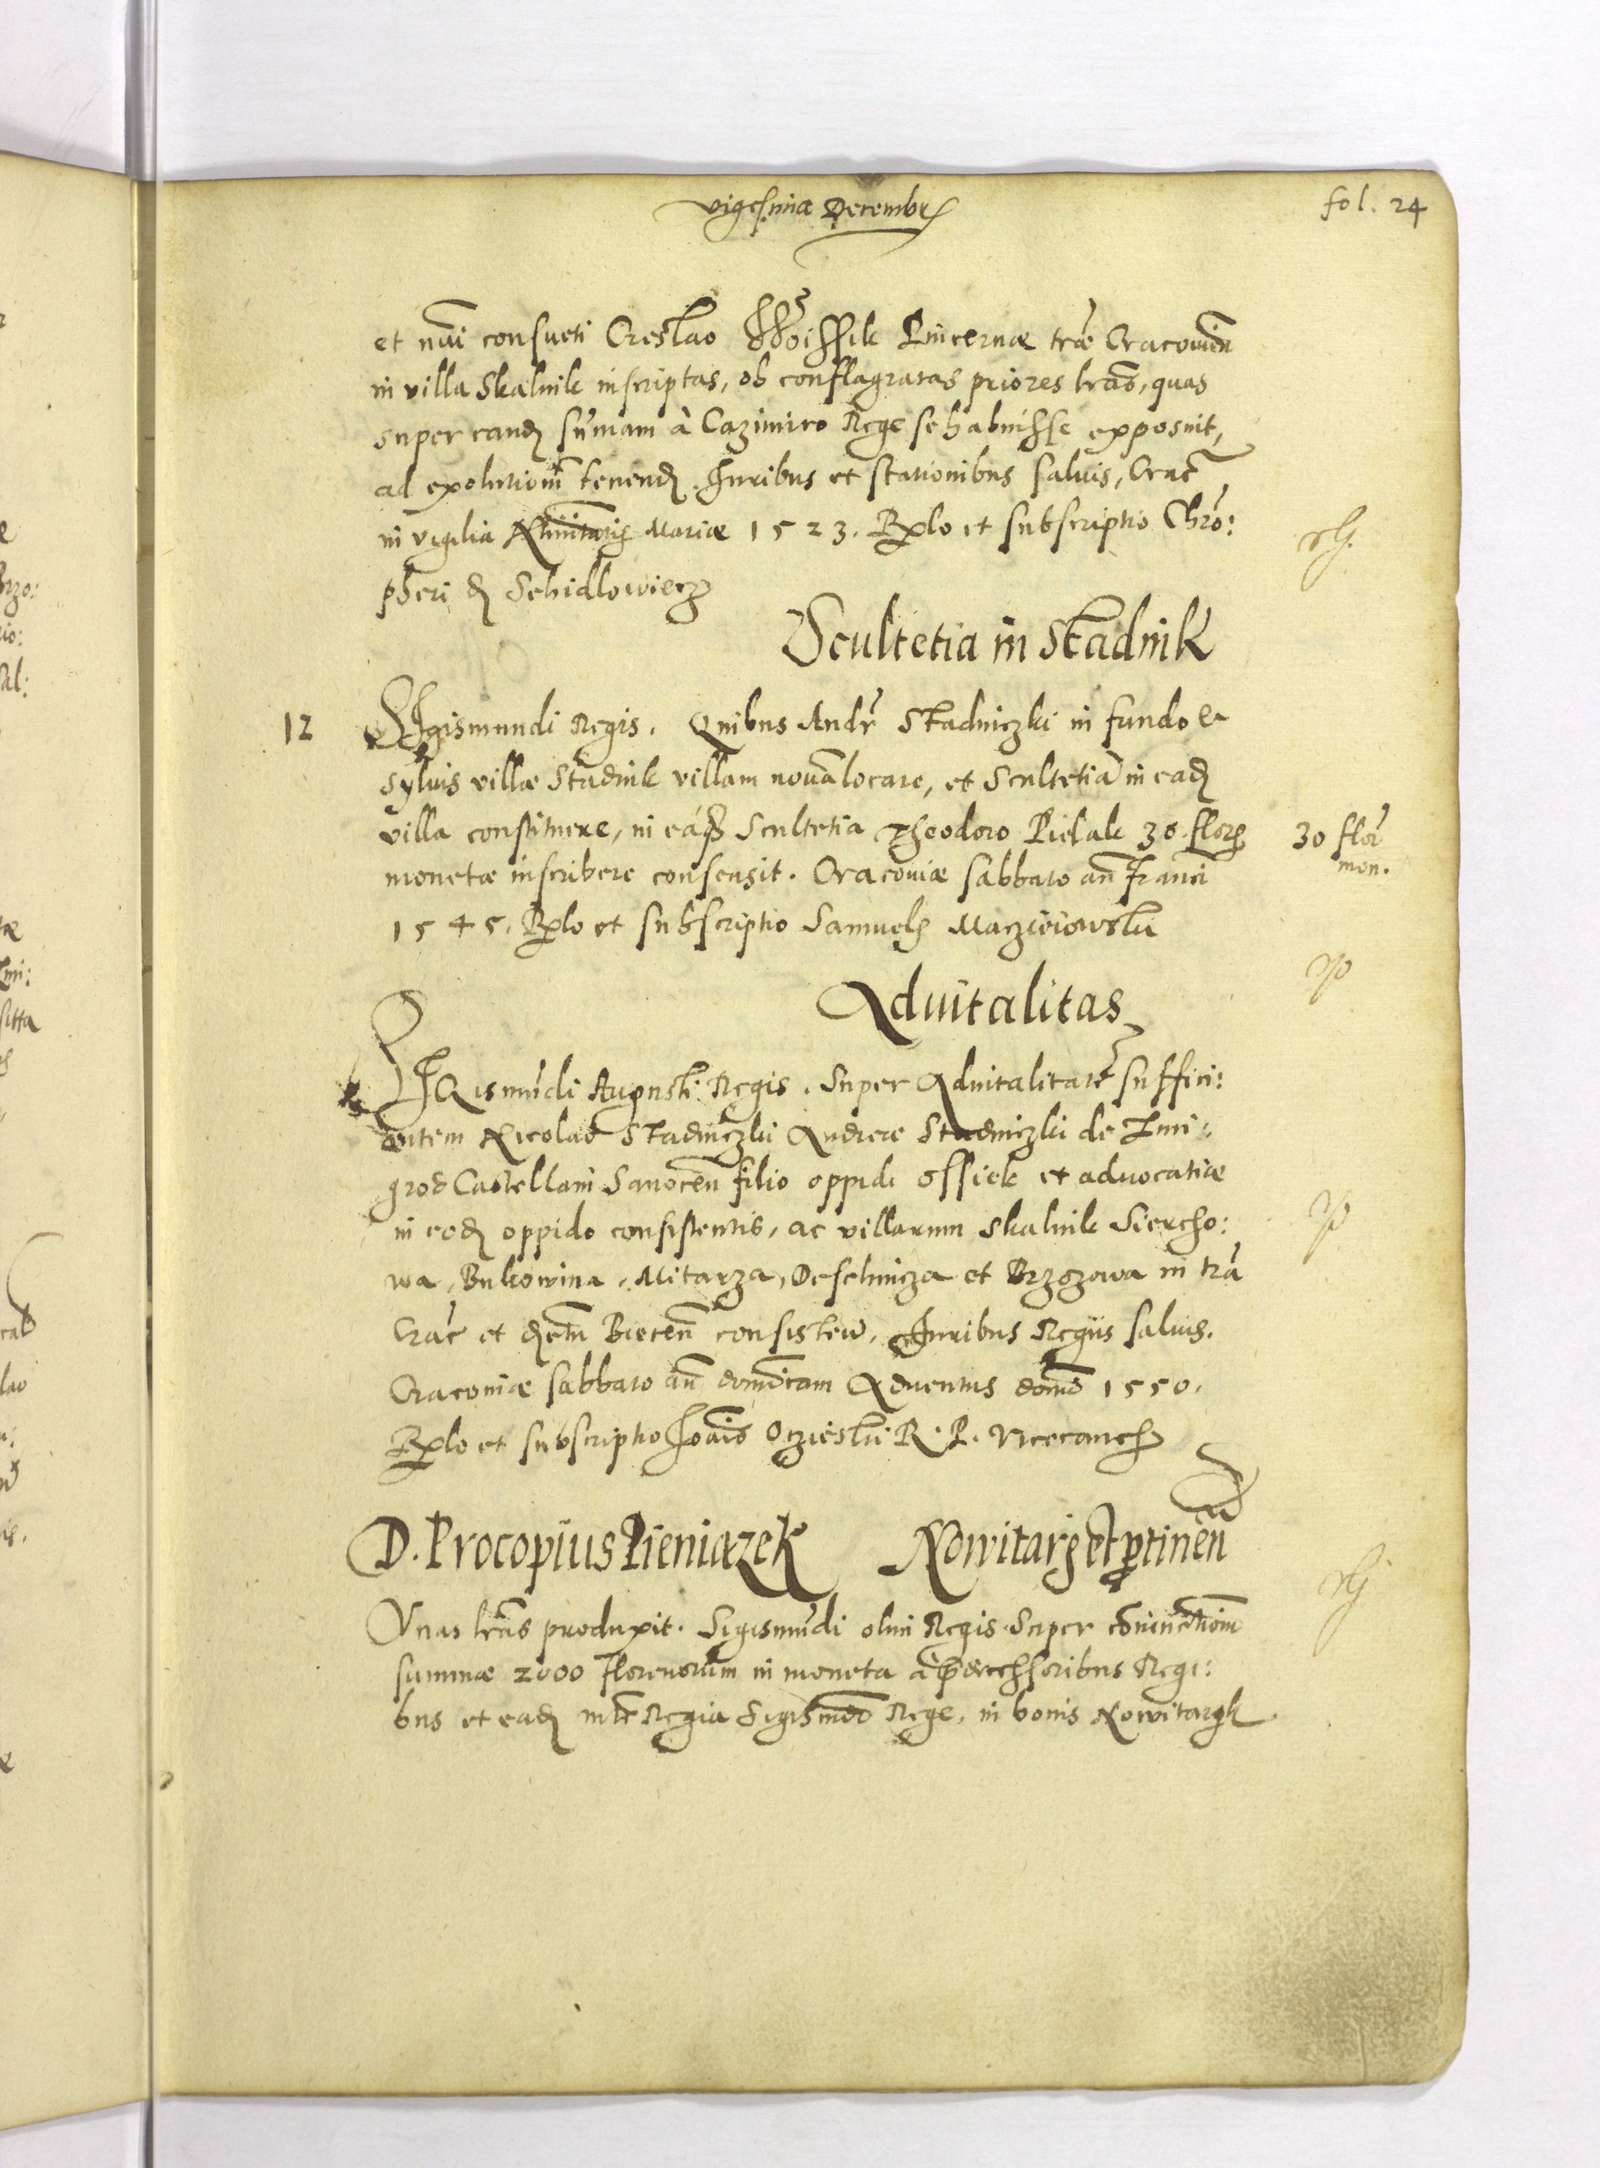 vigesima Decembr
fol. 24
et nūi consueti Creslao Woissik Pincernæ træ Cracouien
in villa Skalnik inscriptas, ob conflagratas priores lras, quas
super eand sūmam à Cazimiro Rege se habuisse exposuit,
ad exolutionē tenend. Iuribus et stationibus saluis, Crac
in vigilia Natiuitatis Mariæ 1523. Rplo et subscriptio Chro:
pheri d Schidlowiecz
Scultetia in Stadnik
12 Sigismundi Regis. Quibus Andr Stadniczki in fundo et
syluis villæ Stadnik villam nouā locare, et Scultetiā in ead
villa constituere, in eaq Scultetia Theodoro Pielak 30 flor
30 flor
mon.
monetæ inscribere consensit. Cracouiæ sabbato an Franci
1545. Rplo et subscriptio Samuel Macziéiowski
Aduitalitas
Sigismūdi Augusti Regis. Super Aduitalitatē suffici:
entem Nicolao Stadniczki Andreæ Stadniczki de Zmi:
grod Castellani Sanocen filio oppidi Ossiek et aduocatiæ
in eod oppido consistentis, ac villarum Skalnik Siercho:
wa, Bukowina, Mitarza, Deschnicza et Brzozowa in trā
Crac et dctu Biecen consisten. Iuribus Regiis saluis.
Cracouiæ sabbato an dominicam Aduentus domi 1550.
Rplo et subscriptio Ioānis Oczieski R. P. Vicecancel
D. Procopius Pieniazek Nowitarg et ptinen
Unas lras produxit. Sigismūdi olim Regis Super coniunctionē
summæ 2000 florenorum in moneta à prædecessoribus Regi:
bus et ead mte Regia Sigismūdo Rege, in bonis Nowitargk